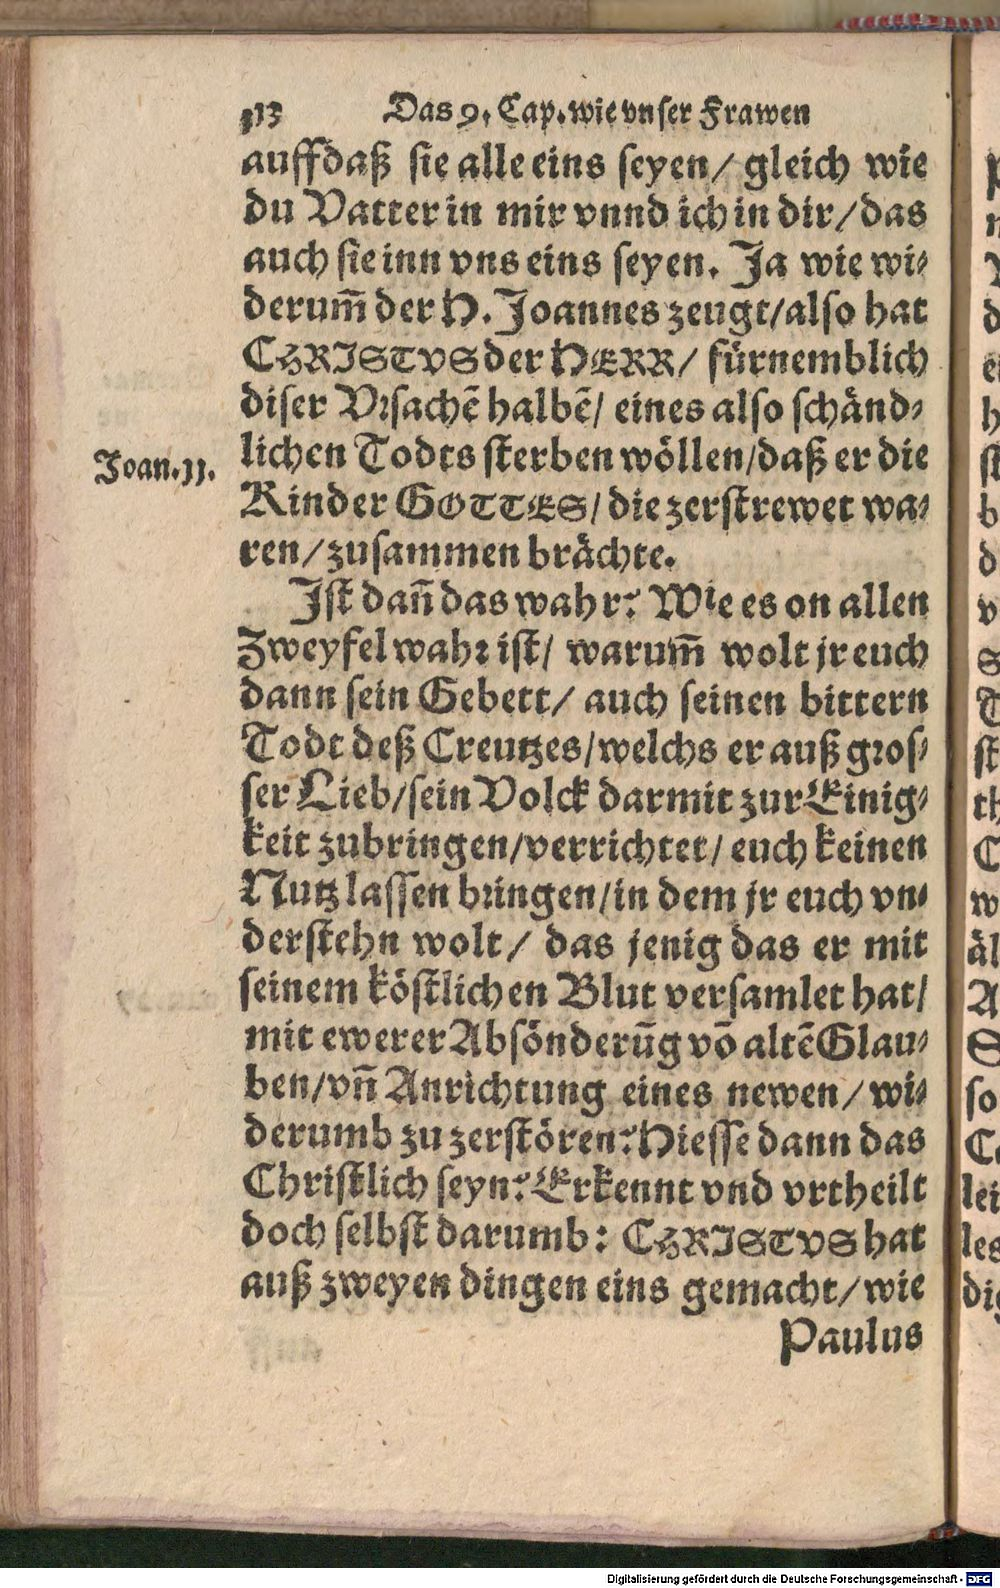 Das 9. Cap. wie vnser Frawen
auffdaß sie alle eins seyen/ gleich wie
du Vatter in mir vnnd ich in dir/ das
auch sie inn vns eins seyen. Ja wie wi-
derum̃ der H. Joannes zeugt/ also hat
CHRISTVS der HERR/ fürnemblich
diser Vrsachẽ halbẽ/ eines also schänd-
Joan. 11.
lichen Todts sterben wöllen/ daß er die
Kinder GOTTES/ die zerstrewet wa-
ren/ zusammen brächte.
Ist dañ das wahr? Wie es on allen
Zweyfel wahr ist/ warum̃ wolt jr euch
dann sein Gebett/ auch seinen bittern
Todt deß Creutzes/ welchs er auß gros-
ser Lieb/ sein Volck darmit zur Einig-
keit zubringen/ verrichtet/ euch keinen
Nutz lassen bringen/ in dem jr euch vn-
derstehn wolt/ das jenig das er mit
seinem köstlichen Blut versamlet hat/
mit ewerer Absönderũg võ altẽ Glau-
ben/ vñ Anrichtung eines newen/ wi-
derumb zu zerstören? Hiesse dann das
Christlich seyn? Erkennt vnd vrtheilt
doch selbst darumb: CHRISTVS hat
auß zweyen dingen eins gemacht/ wie
Paulus
Digitalisierung gefördert durch die Deutsche Forschungsgemeinschaft - DFG